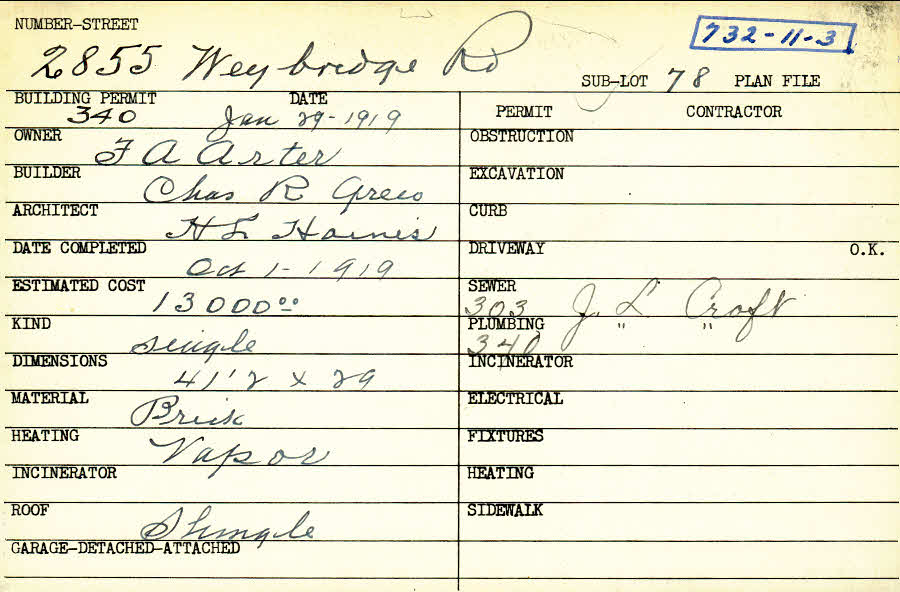 NUMBER-STREET
732-11-3
2855 Weybridge Rd
SUB-LOT 78 PLAN FILE
BUILDING PERMIT DATE
340 Jan 29-1919
PERMIT CONTRACTOR
OWNER
F A Arter
OBSTRUCTION
BUILDER
Chas R Greco
EXCAVATION
ARCHITECT
H L Hainis
CURB
DATE COMPLETED
Oct 1-1919
DRIVEWAY O.K.
ESTIMATED COST
13000 00
SEWER
303 J. L Croft
KIND
single
PLUMBING " "
340
DIMENSIONS
41'2 x 29
INCINERATOR
MATERIAL
Brick
ELECTRICAL
HEATING
Vapor
FIXTURES
INCINERATOR
HEATING
ROOF
Shingle
SIDEWALK
GARAGE-DETACHED-ATTACHED